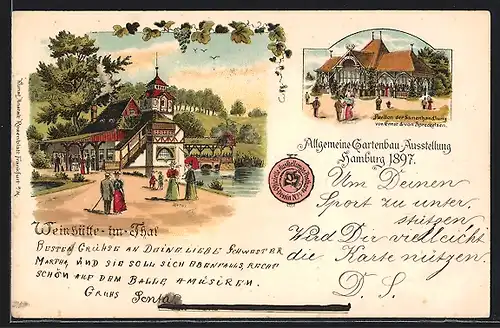 Pavillon der Samenhandlung
von Ernst & von Spreckelsen.
Allgemeine Gartenbau-Ausstellung
Hamburg 1897.
Weinhütte-im-Thal
Um Deinen
Sport zu unter
stützen
Wird Dir vielleicht
die Karte nützen.
D. S.
Besten Grüsse an Deine liebe Schwester
Martha, und sie soll sich ebenfalls recht
schön auf dem Balle amüsiren.
Gruss